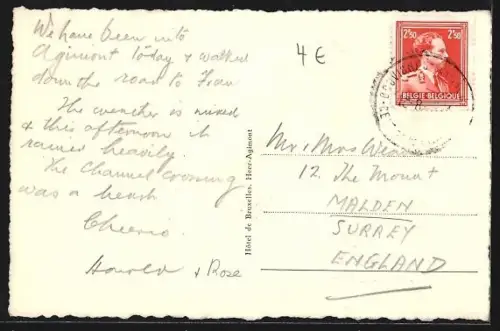 We have been into
Agimont today & walked
down the road to
The weather is mixed
& this afternoon it
rained heavily.
The Channel crossing
was a
Cheerio.
Harold & Rose
Hôtel de Bruxelles. Heer-Agimont
4€
2F50 2F50
BELGIE-BELGIQUE
Mr. Mrs
12. The Mount
MALDEN
SURREY
ENGLAND